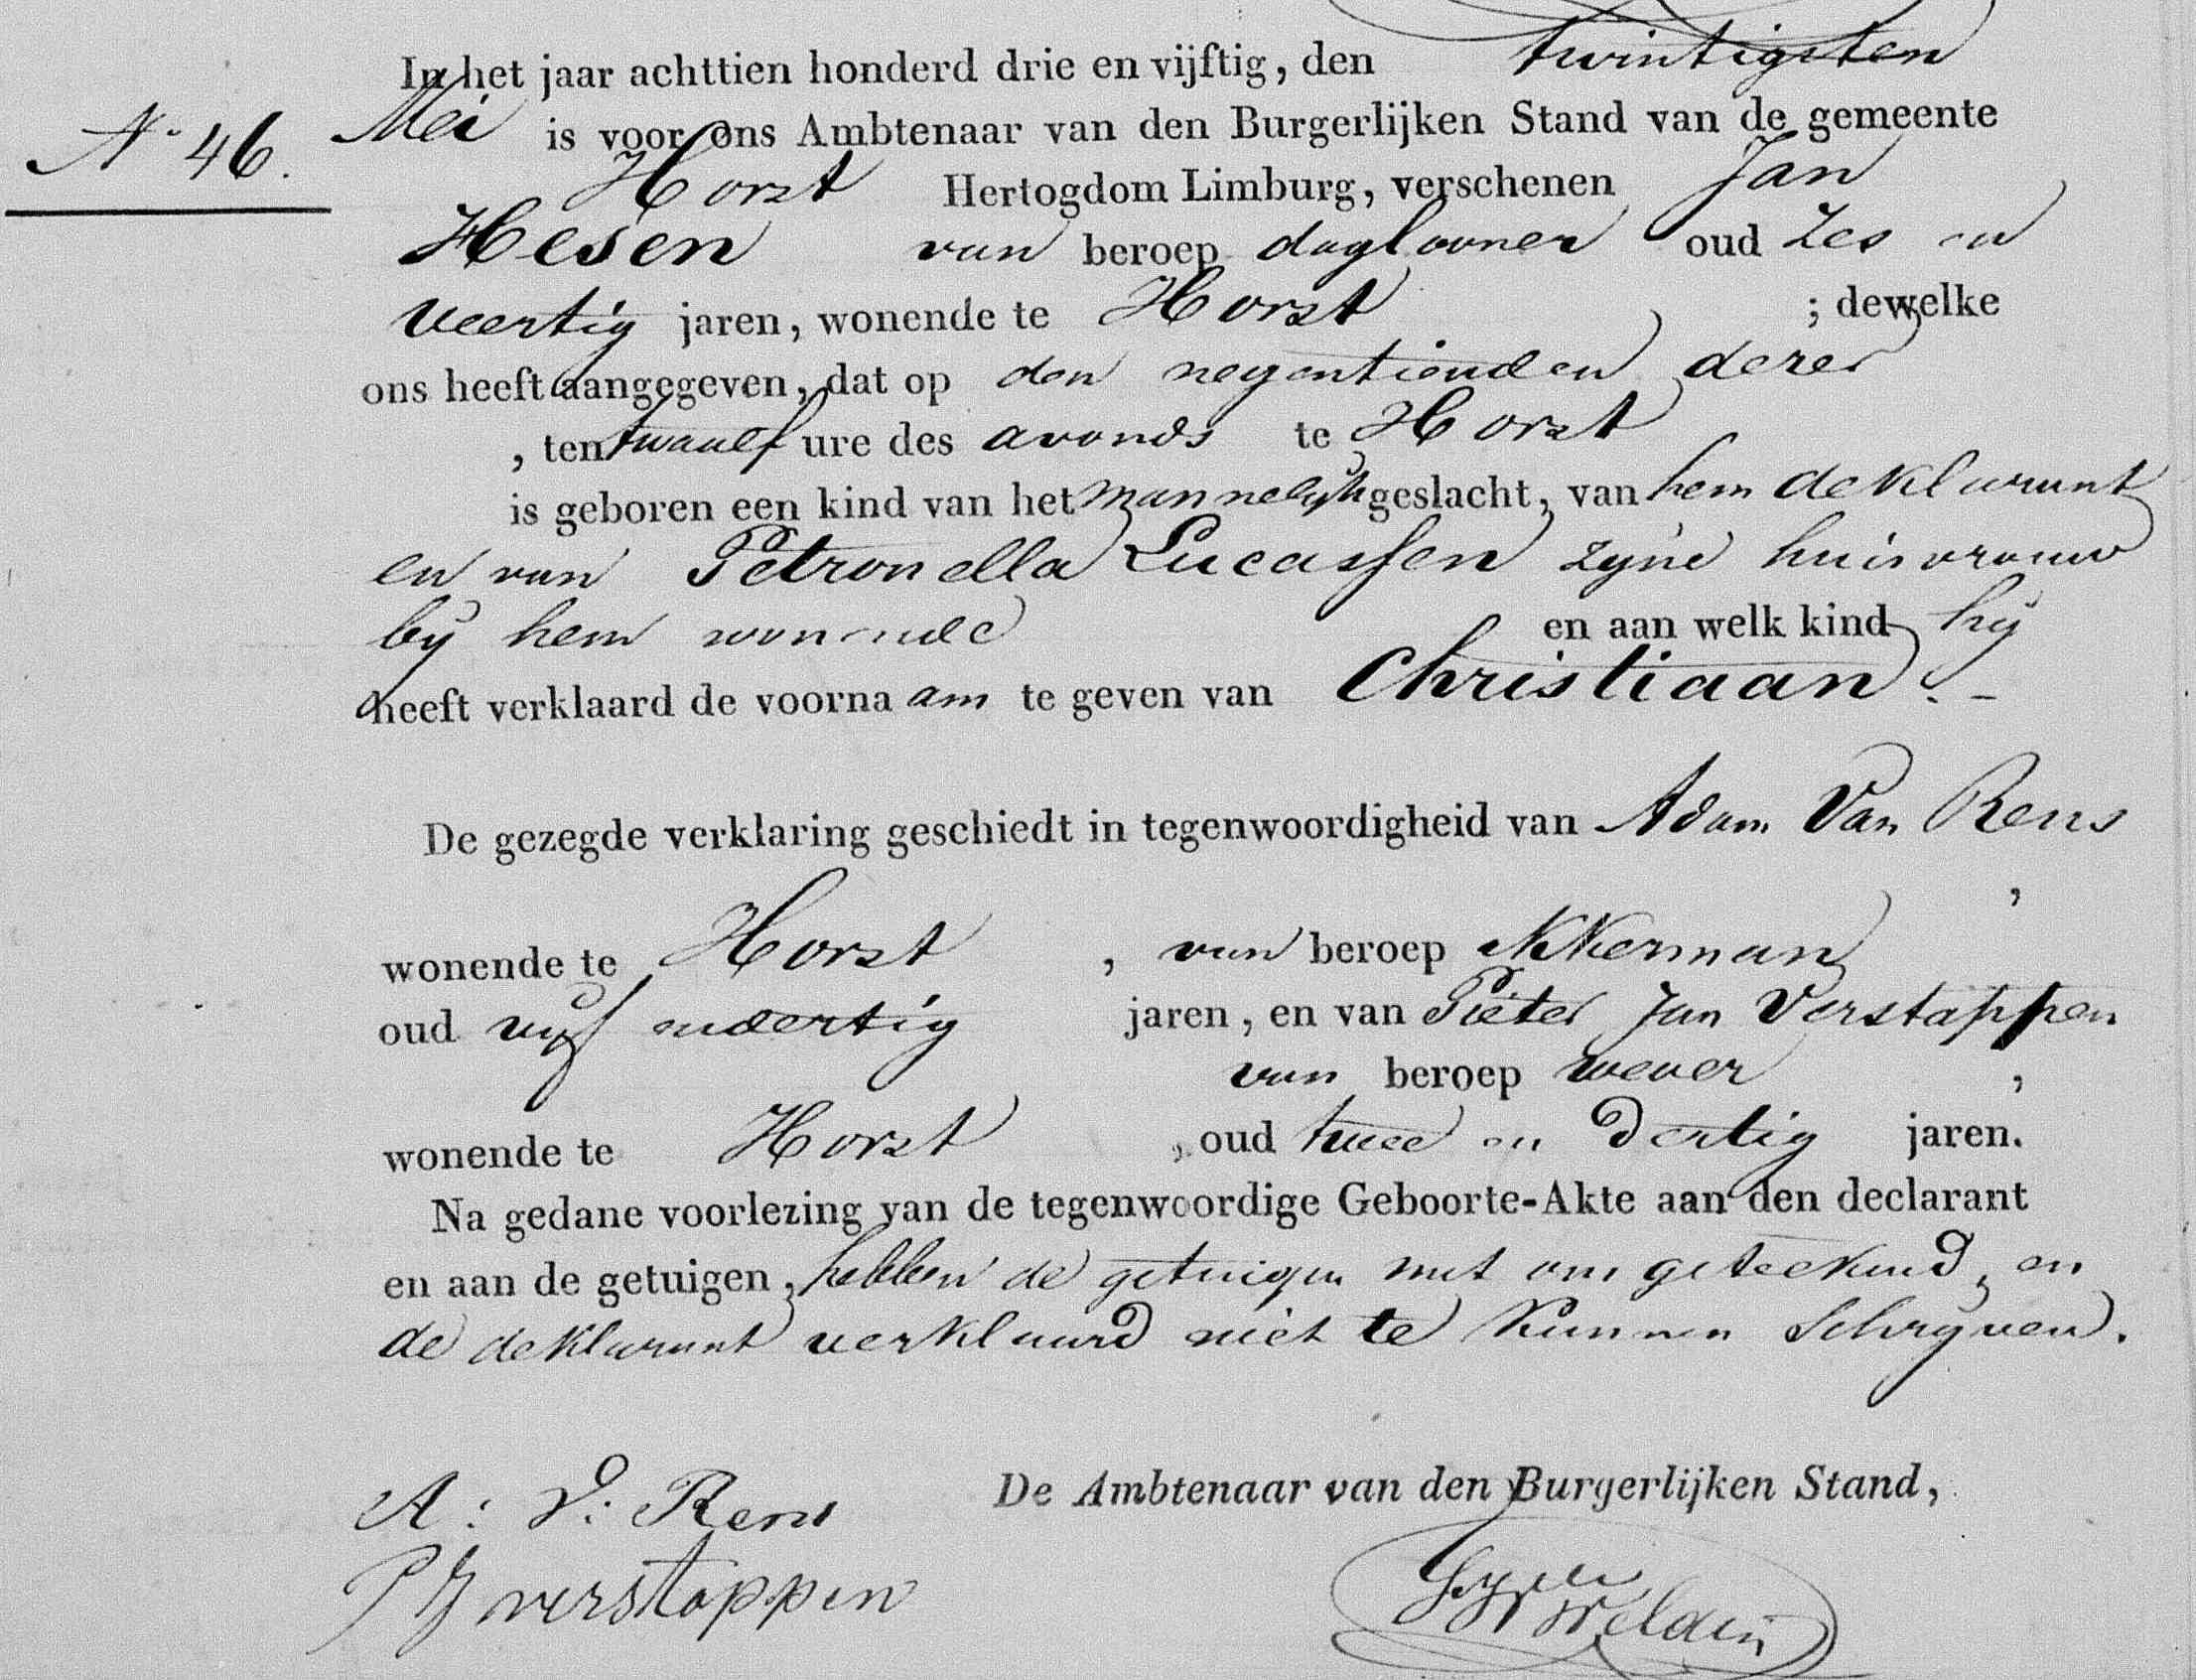 In het jaar achttien honderd drie en vijftig, den twintigsten
No 46.
Mei is voor ons Ambtenaar van den Burgerlijken Stand van de gemeente
Horst Hertogdom Limburg, verschenen Jan
Hesen van beroep daglooner oud zes en
veertig jaren, wonende te Horst ; dewelke
ons heeft aangegeven, dat op den negentienden dezer
, ten twaalf ure des avonds te Horst
is geboren een kind van het mannelijk geslacht, van hem deklarant
en van Petronella Lucassen zijne huisvrouw
bij hem wonende en aan welk kind hij
heeft verklaard de voorna am te geven van Christiaan. -
De gezegde verklaring geschiedt in tegenwoordigheid van Adam Van Rens
,
wonende te Horst , van beroep akkerman
oud vijf endertig jaren, en van Pieter Jan Verstappen
van beroep wever ,
wonende te Horst , oud twee en dertig jaren.
Na gedane voorlezing van de tegenwoordige Geboorte-Akte aan den declarant
en aan de getuigen, hebben de getuigen met ons geteekend, en
de deklarant verklaard niet te kunnen schrijven.
De Ambtenaar van den Burgerlijken Stand,
A: V: Rens
PJ verstappen